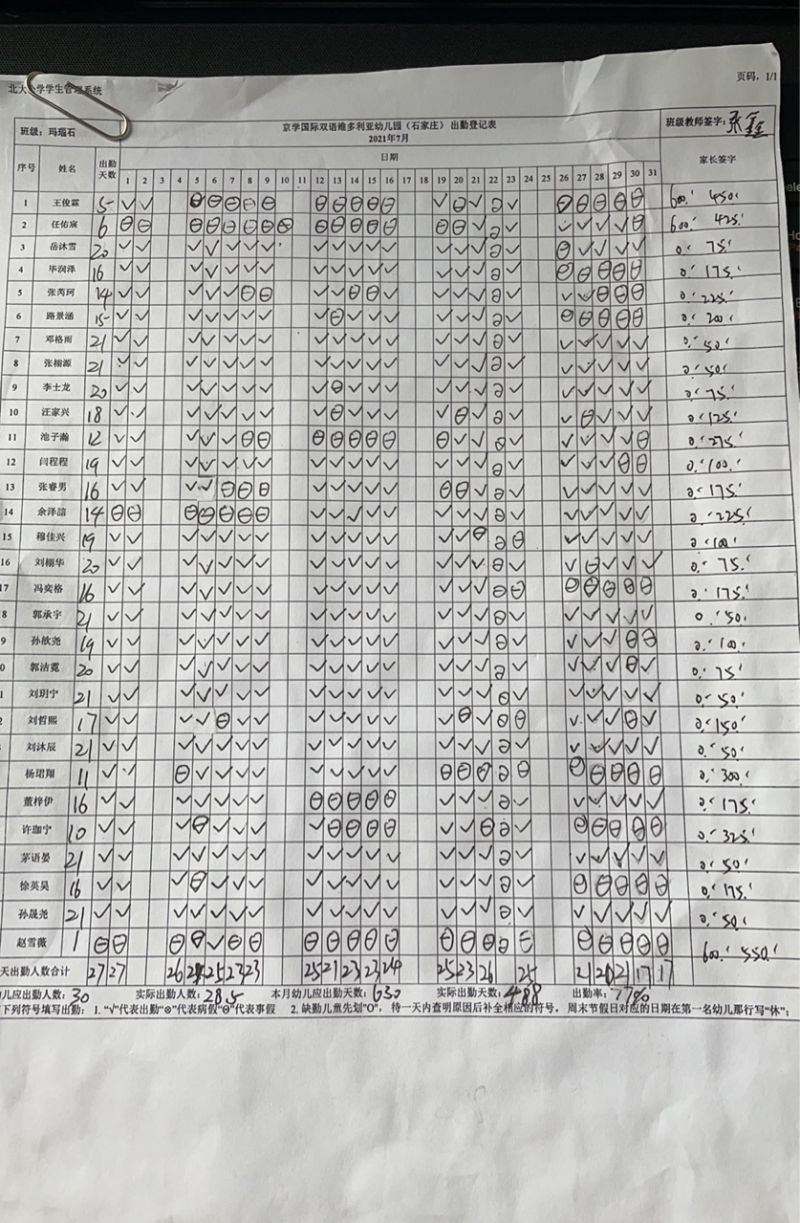 北大 学学生管理系统
页码，1/1
班级：玛瑙石 京学国际双语维多利亚幼儿园（石家庄）出勤登记表 班级教师签字：张鑫
2021年7月
序号 姓名 出勤天数 日期 家长签字
1 2 3 4 5 6 7 8 9 10 11 12 13 14 15 16 17 18 19 20 21 22 23 24 25 26 27 28 29 30 31
1 王俊霖 5 600. 450.
2 任佑宸 6 600. 425.
3 岳沐雪 20 0. 75.
4 毕润泽 16 0. 175.
5 张芮珂 14 0. 225.
6 路景涵 15 0. 200
7 邓格雨 21 0. 50.
8 张栩源 21 0. 50.
9 李士龙 20 0. 75.
10 汪家兴 18 0. 125.
11 池子瀚 12 0. 275.
12 闫程程 19 0. 100.
13 张睿男 16 0. 175.
14 余泽諳 14 0. 225.
15 穆佳兴 19 0. 100
16 刘栩华 20 0. 75.
7 冯奕格 16 0. 175.
8 郭承宇 21 0. 50.
9 孙歆尧 19 0. 100.
0 郭洁霓 20 0. 75.
1 刘玥宁 21 0. 50.
2 刘哲熙 17 0. 150.
刘沐辰 21 0. 50.
杨珺翔 11 0. 300.
董梓伊 16 0. 175.
许珈宁 10 0. 325.
茅语晏 21 0. 50.
徐英昊 16 0. 175.
孙晟尧 21 0. 50.
赵雪薇 1 600. 550.
天出勤人数合计 27 27 26 24 25 23 23 25 21 23 23 24 25 23 26 25 21 20 21 17 17
儿应出勤人数：30 实际出勤人数：28.5 本月幼儿应出勤天数：630 实际出勤天数：488 出勤率：77%
下列符号填写出勤： 1. “√”代表出勤“⊗”代表病假“⊖”代表事假 2. 缺勤儿童先划“O”， 待一天内查明原因后补全相应的符号， 周末节假日对应的日期在第一名幼儿那行写“休”；